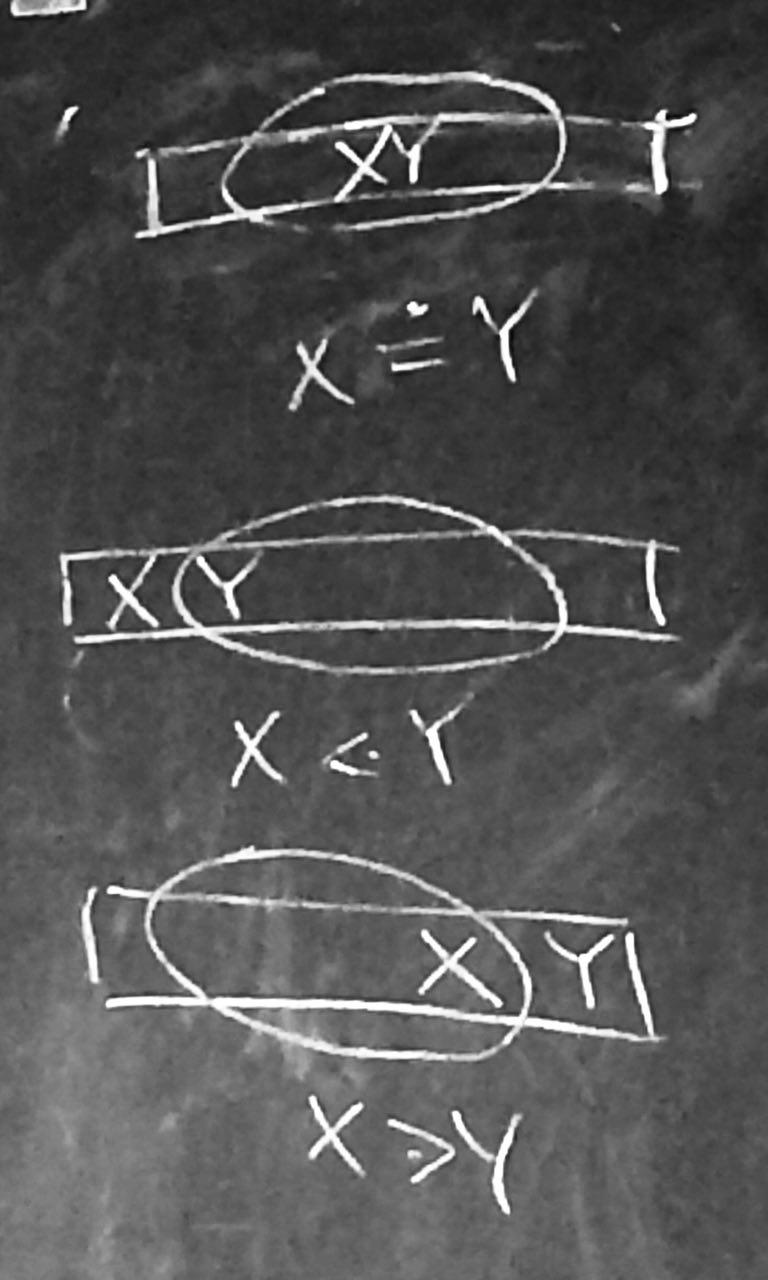 XY
X ≐ Y
X Y
X ⋖ Y
X Y
X ⋗ Y